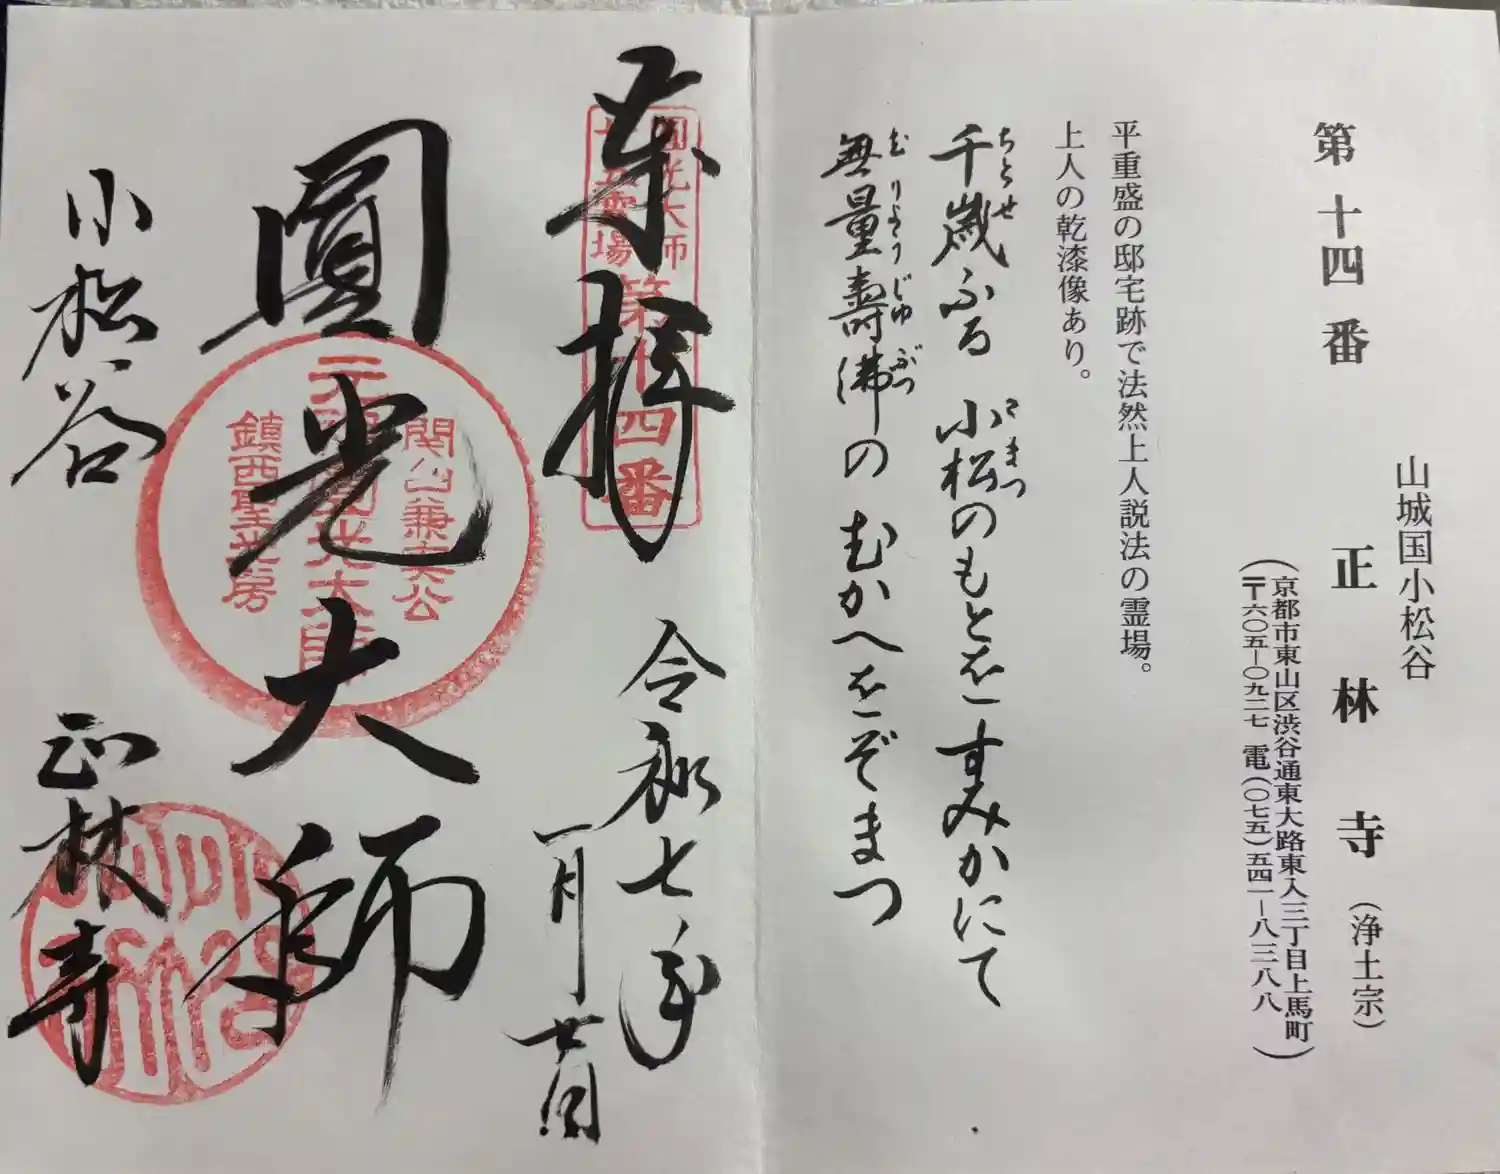 第十四番 正林寺（浄土宗）
山城国小松谷
（京都市東山区渋谷通東大路東入三丁目上馬町
〒六〇五―〇九二七 電（〇七五）五四一―八三八八）
平重盛の邸宅跡で法然上人説法の霊場。
上人の乾漆像あり。
千歳ふる 小松のもとを すみかにて
ちとせ こまつ
無量壽佛の むかへをぞまつ
むりょうじゅぶつ
奉拝
圓光大師
廿五霊場
第十四番
令和七年
一月廿一日
圓光大師
開山兼実公
元祖圓光大師
鎮西聖光房
小松谷
正林寺